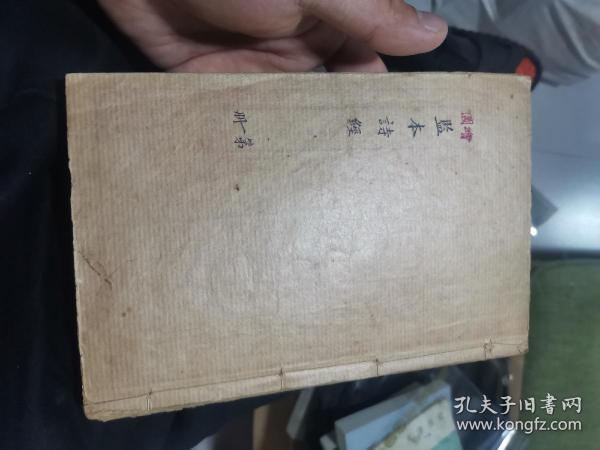 繪圖
監本詩經
第一冊
孔夫子旧书网
www.kongfz.com